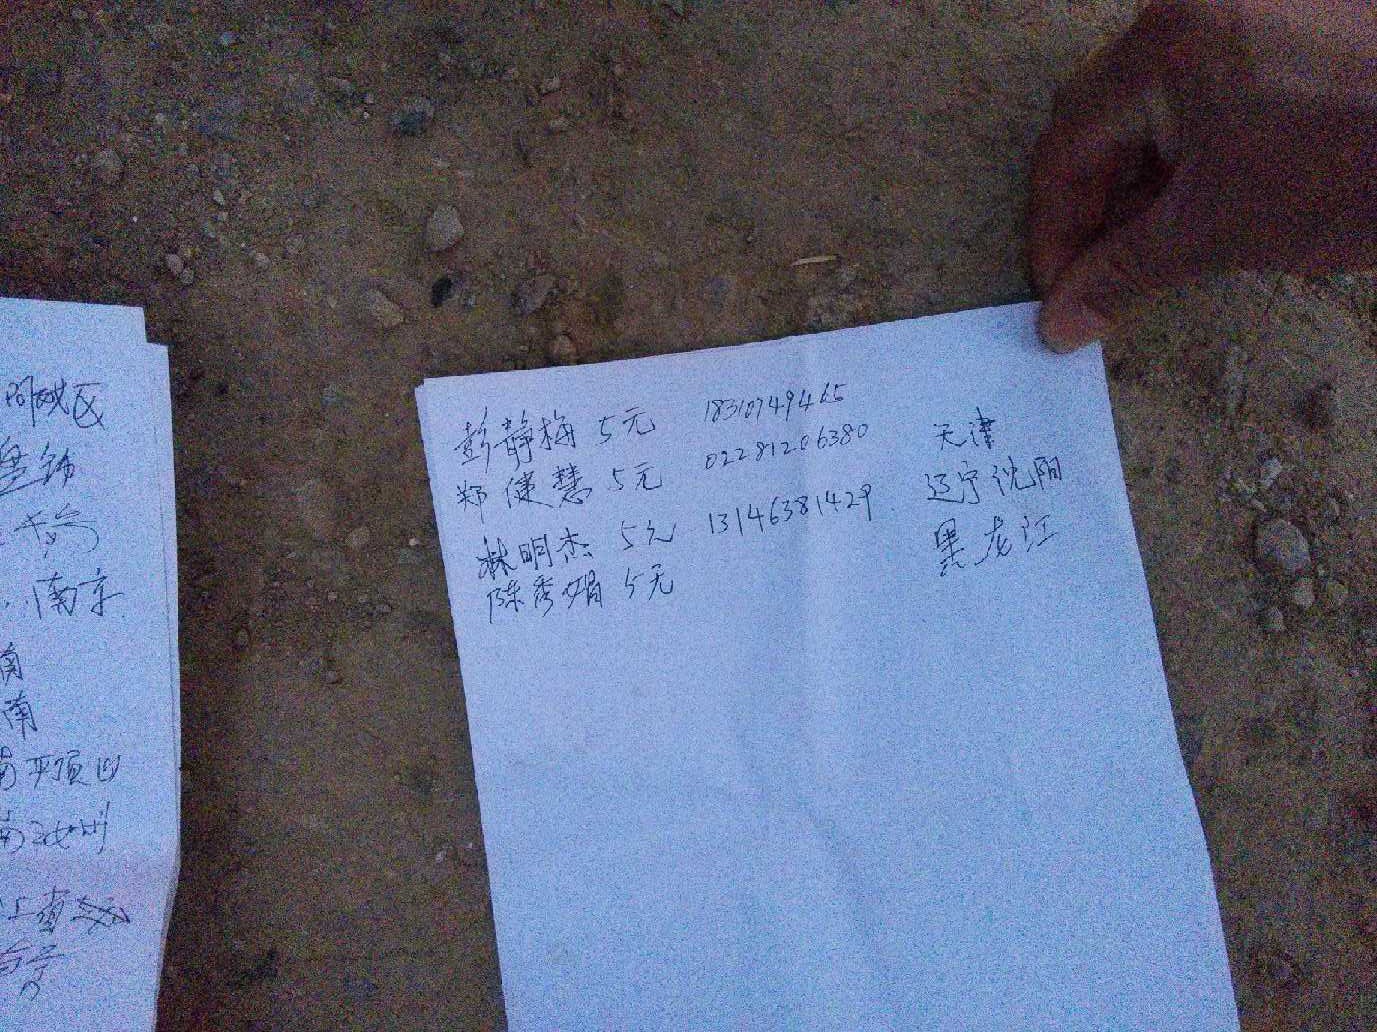 阿城区
南京
南
南
南平顶山
南汝州
彭静梅 5元 18310749465
郑健慧 5元 02281206380 天津
林明杰 5元 13146381429 辽宁沈阳
陈秀娟 5元 黑龙江